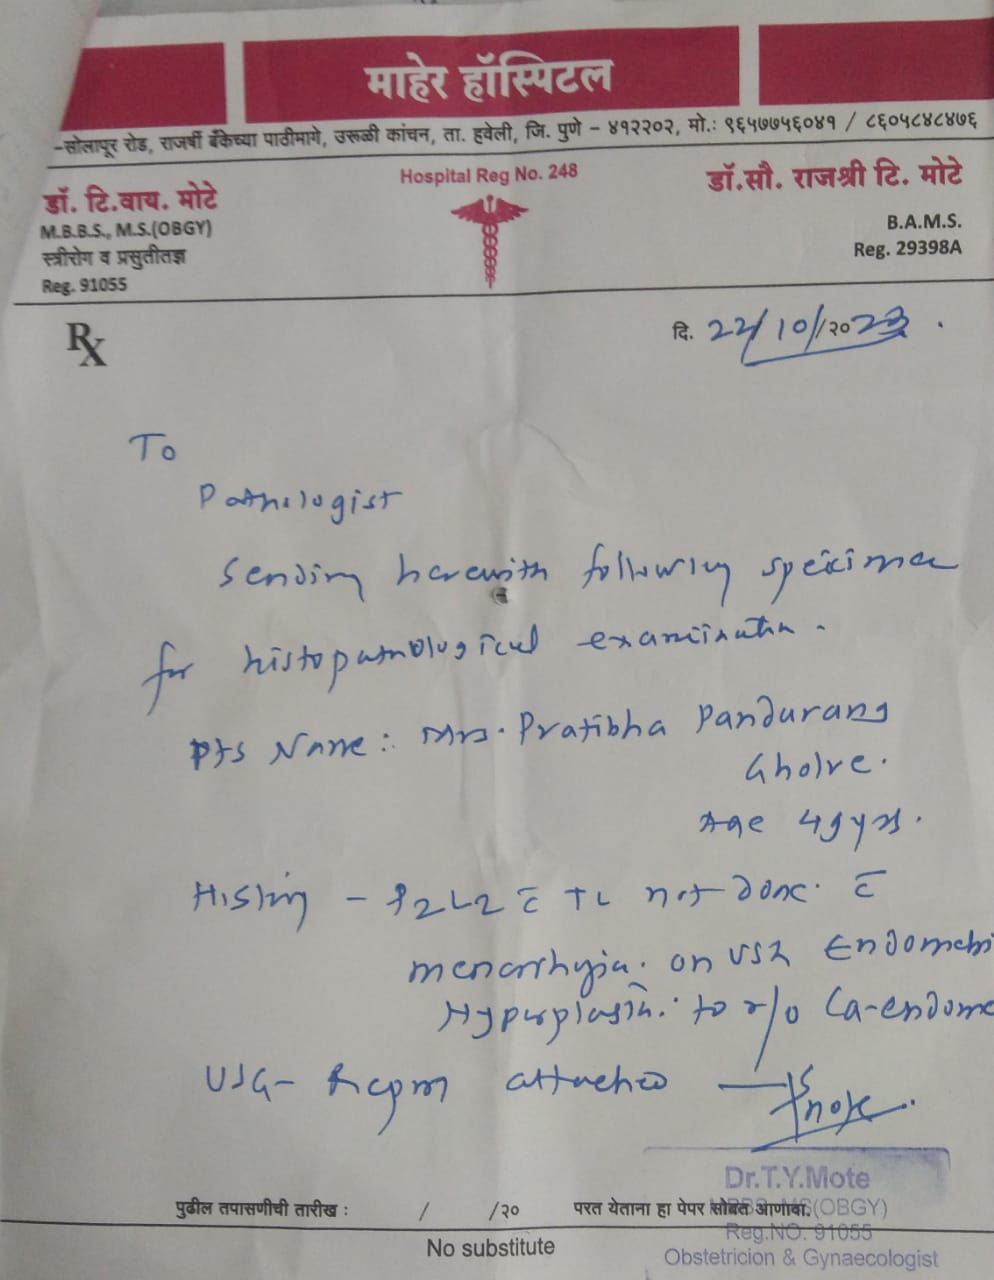 माहेर हॉस्पिटल
-सोलापूर रोड, राजर्षी बँकेच्या पाठीमागे, उरूळी कांचन, ता. हवेली, जि. पुणे - ४१२२०२, मो.: ९६५७७५६०४१ / ८६०५८४८४७६
Hospital Reg No. 248
डॉ. टि.वाय. मोटे
M.B.B.S., M.S.(OBGY)
स्त्रीरोग व प्रसुतीतज्ञ
Reg. 91055
डॉ.सौ. राजश्री टि. मोटे
B.A.M.S.
Reg. 29398A
Rx
दि. 22/10/२०23
To
Pathologist
Sending herewith following specimen
for histopathological examination.
Pts Name: Mrs. Pratibha Pandurang
Gholve.
Age 49 yrs.
History - P2L2 c̄ TL not done. c̄
menorrhgia. on USG Endomet
Hyperplasia. to r/o Ca-endome
USG- Report attached
Dr.T.Y.Mote
MBBS, MS(OBGY)
Reg.NO. 91055
Obstetricion & Gynaecologist
पुढील तपासणीची तारीख : / /२०
परत येताना हा पेपर सोबत आणावा.
No substitute